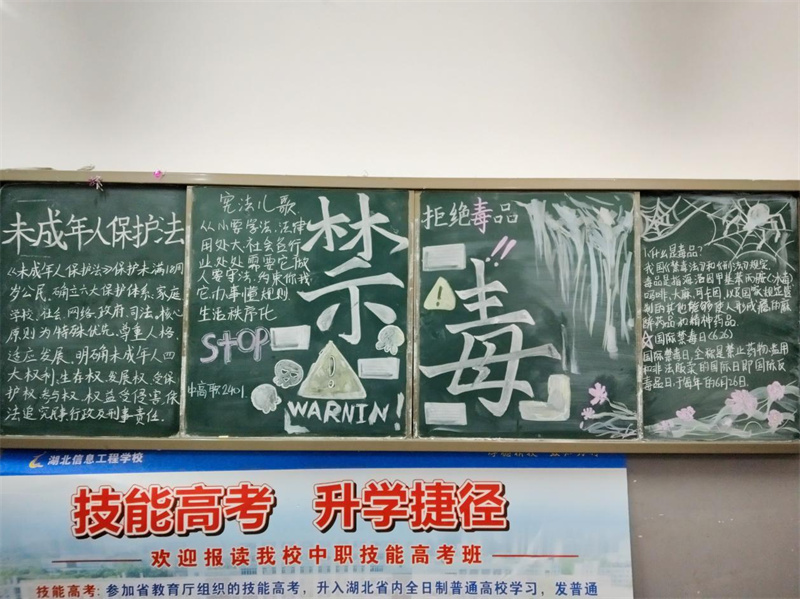 未成年人保护法
《未成年人保护法》保护未满18周
岁公民,确立六大保护体系,家庭
学校,社会,网络,政府,司法,核心
原则为特殊优先,尊重人格
适应发展,明确未成年人四
大权利,生存权,发展权,受保
护权,参与权,权益受侵害,依
法追究民事行政及刑事责任.
宪法儿歌
从小要学法,法律
用处大,社会各行
业处处需要它,做
人要守法,约束你我
它,办事懂规则
生活秩序化
STOP
中高职2401
禁
WARNIN!
拒绝毒品
!!
毒
1.什么是毒品?
我国《禁毒法》和《刑法》规定,
毒品是指海洛因甲基苯丙胺(冰毒)
吗啡、大麻、可卡因,以及国家规定管
制的其他能够使人形成瘾癖的麻
醉药品和精神药品.
国际禁毒日(6.26)
国际禁毒日,全称是禁止药物滥用
和非法贩卖的国际日即国际反
毒品日,于每年的6月26日.
湖北信息工程学校
技能高考 升学捷径
欢迎报读我校中职技能高考班
技能高考:参加省教育厅组织的技能高考,升入湖北省内全日制普通高校学习,发普通